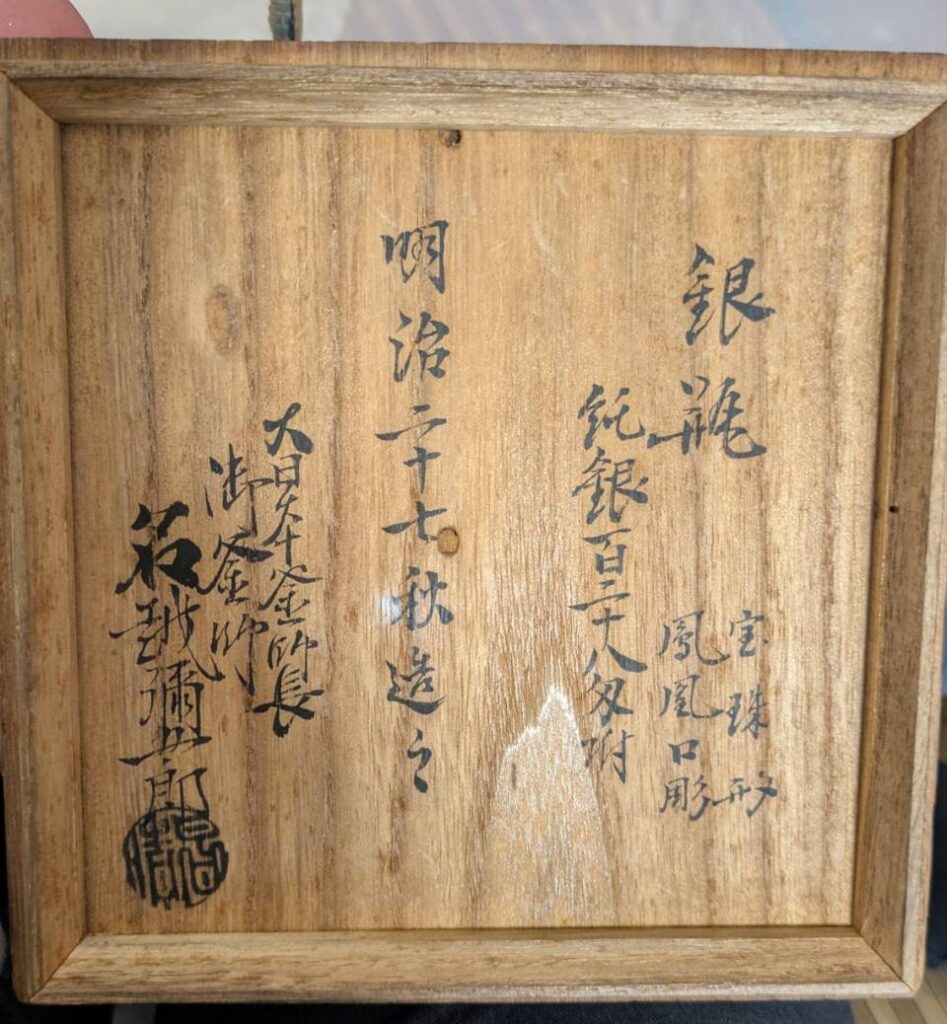 銀瓶
宝珠形
鳳凰口彫
純銀百三十八匁附
明治二十七秋造之
大日本釜師長
御釜師
名越彌五郎